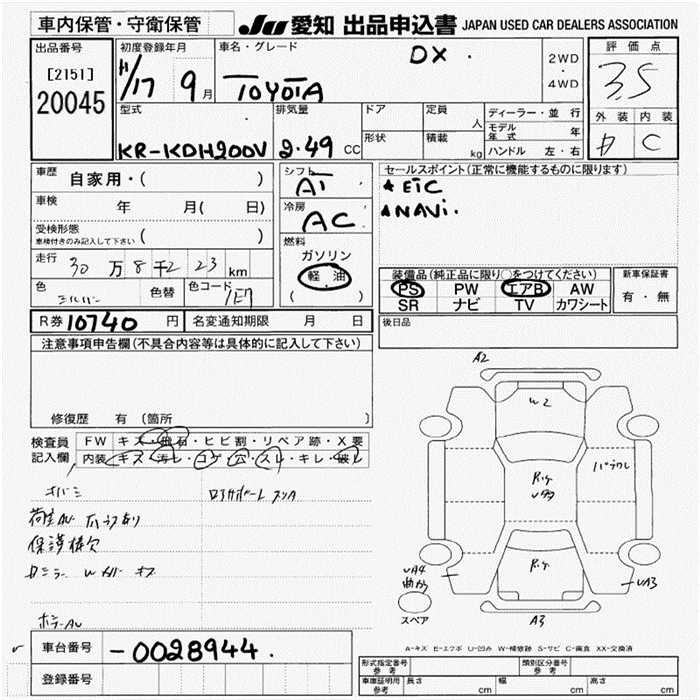 車内保管・守衛保管
JU 愛知 出品申込書 JAPAN USED CAR DEALERS ASSOCIATION
出品番号
[2151]
20045
初度登録年月
H/17 9月
車名・グレード
DX
TOYOTA
2WD
・
4WD
評価点
3.5
外装 内装
C
型式
KR-KDH200V
排気量
2.49 CC
ドア
形状
定員
人
積載
kg
ディーラー・並行
モデル年式 年
ハンドル 左・右
車歴
自家用・( )
車検 年 月( 日)
受検形態
車検付きのみ記入して下さい ( )
走行 30万8千2 23 km
色 シルバー
色替
色コード 1E7
R券 10740 円
名変通知期限 月 日
シフト
AT
冷房
AC
燃料
ガソリン
軽油
( )
セールスポイント(正常に機能するものに限ります)
★ETC
★NAVi.
装備品(純正品に限り○をつけてください)
PS PW エアB AW
SR ナビ TV カワシート
新車保証書
有・無
後日品
注意事項申告欄(不具合内容等は具体的に記入して下さい)
修復歴 有 〔箇所 〕
検査員
記入欄
FW キズ・飛石・ヒビ割・リペア跡・X要
内装 キズ・汚レ・コゲ・穴・スレ・キレ・破レ
保護棒欠
車台番号
-0028944.
登録番号
A2
W2
UA4
曲がり
UA3
A3
スペア
A-キズ E-エクボ U-凹み W-補修跡 S-サビ C-腐食 XX-交換済
形式指定番号
参考
類別区分番号
参考
車庫証明用
参考
長さ cm
幅 cm
高さ cm